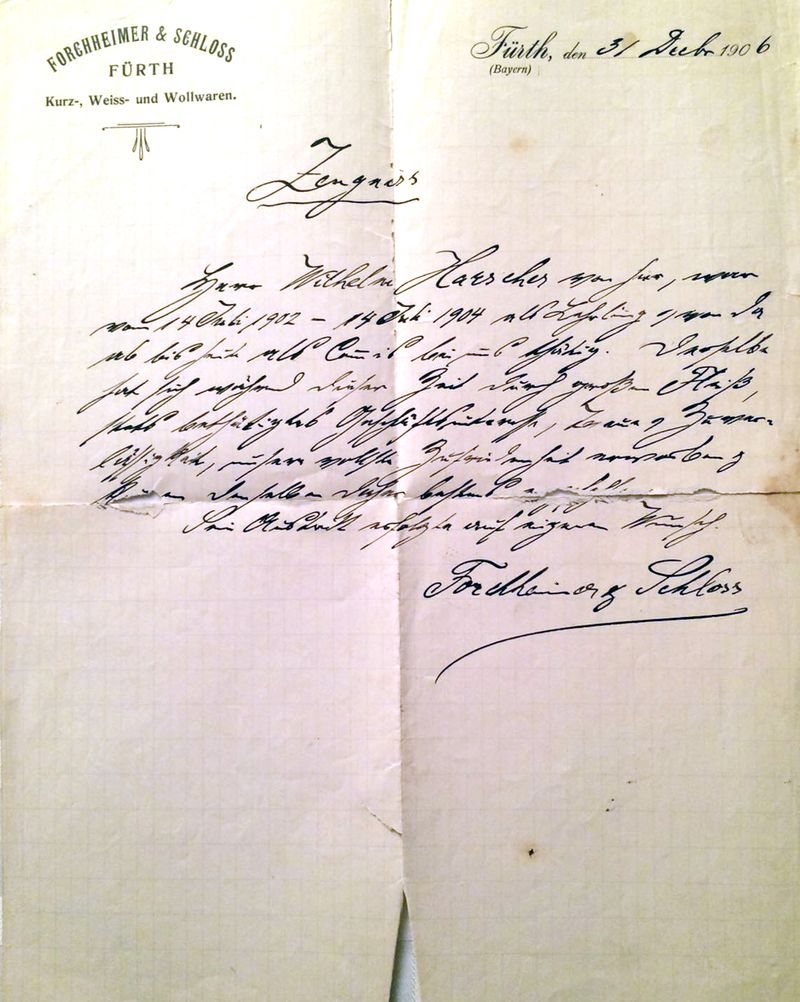 FORCHHEIMER & SCHLOSS
FÜRTH
Kurz-, Weiss- und Wollwaren.
Fürth, den 31 Decbr 1906
(Bayern)
Zeugniss
Herr Wilhelm Harscher von hier, war
vom 14 Juli 1902 – 14 Juli 1904 als Lehrling & von da
ab bis heute als Commis bei uns thätig. Derselbe
hat sich während dieser Zeit durch großen Fleiß,
stets bethätigtes Geschäftsinteresse, Treue & Zuver-
lässigkeit, unsere vollste Zufriedenheit erworben &
können denselben daher bestens
Sein Austritt erfolgte auf eigenen Wunsch.
Forchheimer & Schloss